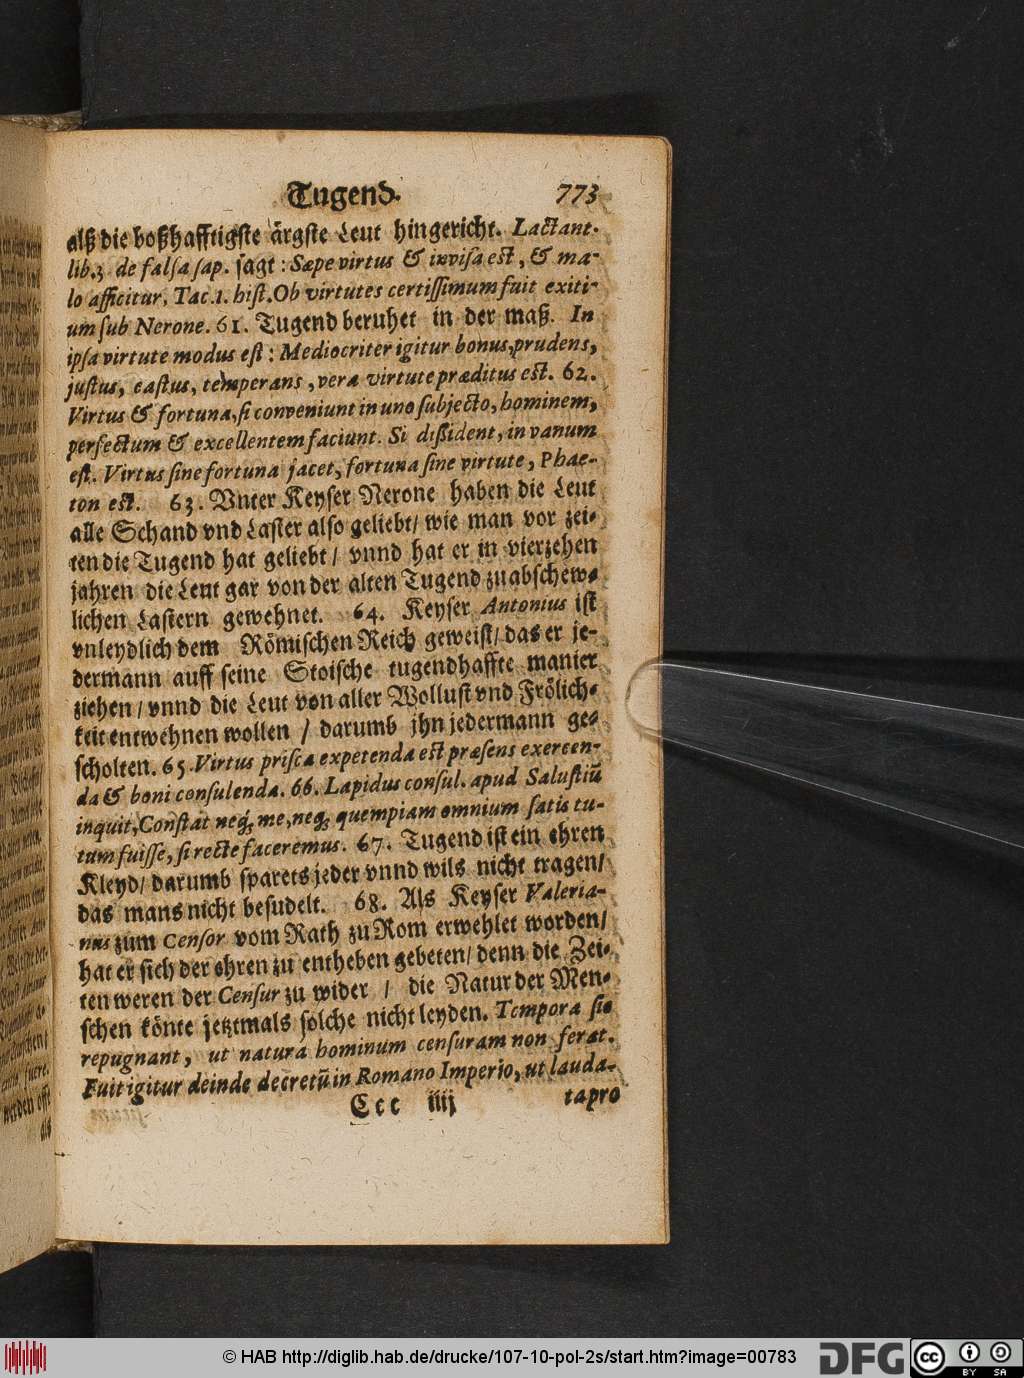 Tugend. 773
alß die boßhafftigste ärgste Leut hingericht. Lactant.
lib.3 de falsa sap. sagt : Sæpe virtus & invisa est, & ma-
lo afficitur, Tac. 1. hist. Ob virtutes certissimum fuit exiti-
um sub Nerone. 61. Tugend beruhet in der maß. In
ipsa virtute modus est : Mediocriter igitur bonus, prudens,
justus, castus, temperans, vera virtute præditus est. 62.
Virtus & fortuna, si conveniunt in uno subjecto, hominem,
perfectum & excellentem faciunt. Si dißident, in vanum
est. Virtus sine fortuna jacet, fortuna sine virtute, Phae-
ton est. 63. Vnter Keyser Nerone haben die Leut
alle Schand vnd Laster also geliebt/ wie man vor zei-
ten die Tugend hat geliebt/ vnnd hat er in vierzehen
jahren die Leut gar von der alten Tugend zu abschew-
lichen Lastern gewehnet. 64. Keyser Antonius ist
vnleydlich dem Römischen Reich geweist/ das er je-
dermann auff seine Stoische tugendhaffte manier
ziehen/ vnnd die Leut von aller Wollust vnd Frölich-
keit entwehnen wollen / darumb jhn jedermann ge-
scholten. 65. Virtus prisca expetenda est præsens exercen-
da & boni consulenda. 66. Lapidus consul. apud Salustiũ
inquit, Constat neq; me, neq; quempiam omnium satis tu-
tum fuisse, si recte faceremus. 67. Tugend ist ein ehren
Kleyd/ darumb sparets jeder vnnd wils nicht tragen/
das mans nicht besudelt. 68. Als Keyser Valeria-
nus zum Censor vom Rath zu Rom erwehlet worden/
hat er sich der ehren zu entheben gebeten/ denn die Zei-
ten weren der Censur zu wider / die Natur der Men-
schen könte jetztmals solche nicht leyden. Tempora sic
repugnant, ut natura hominum censuram non ferat.
Fuit igitur deinde decretũ in Romano Imperio, ut lauda-
Ccc iiij tapro
© HAB http://diglib.hab.de/drucke/107-10-pol-2s/start.htm?image=00783
DFG
cc BY SA